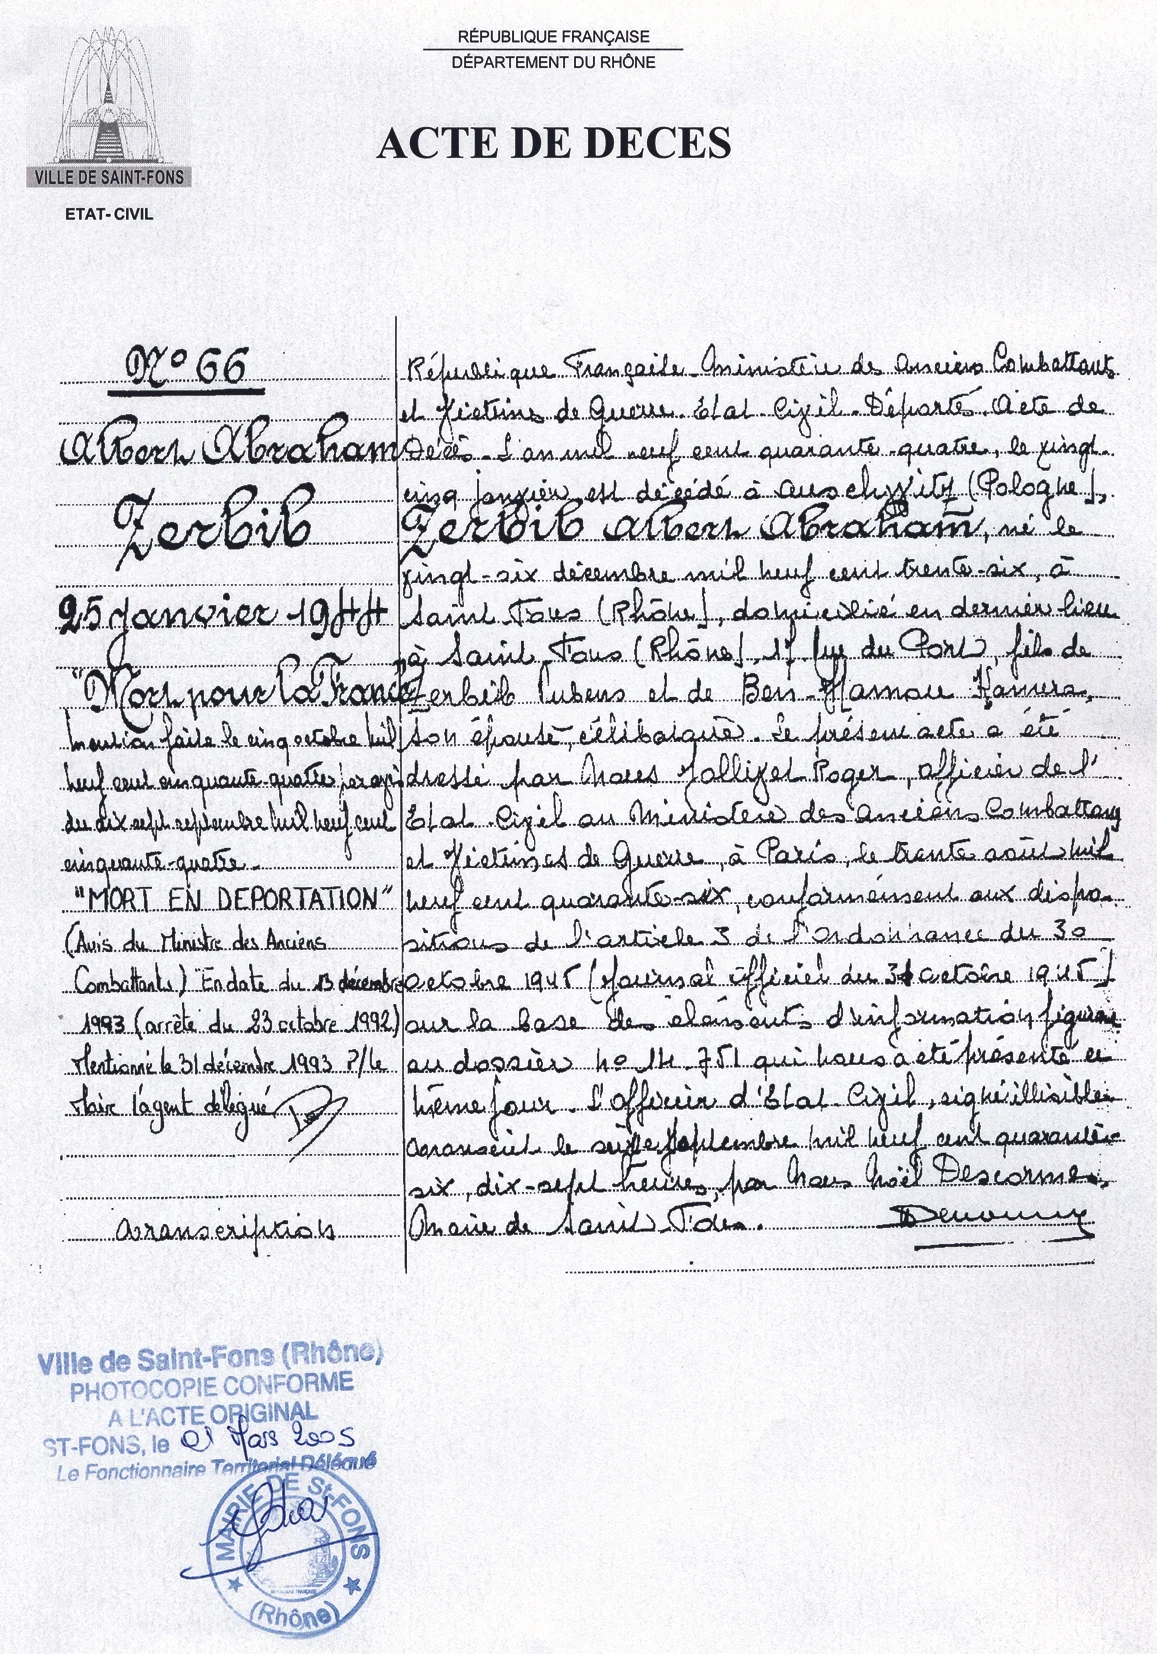 RÉPUBLIQUE FRANÇAISE
DÉPARTEMENT DU RHÔNE
ACTE DE DECES
VILLE DE SAINT-FONS
ETAT-CIVIL
N° 66
Albert Abraham
Zerbib
25 janvier 1944
"Mort pour la France"
Mention faite le cinq octobre mil
neuf cent cinquante-quatre par avis
du dix sept septembre mil neuf cent
cinquante-quatre.
"MORT EN DEPORTATION"
(Avis du Ministre des Anciens
Combattants) En date du 13 décembre
1993 (arrêté du 23 octobre 1992)
Mentionné le 31 décembre 1993 P/le
Maire l'agent délégué
transcription
République Française. Ministère des Anciens Combattants
et Victimes de Guerre. Etat-Civil-Déportés. Acte de
Décès. L'an mil neuf cent quarante-quatre, le vingt
cinq janvier, est décédé à Auschwitz (Pologne),
Zerbib Albert Abraham, né le
vingt-six décembre mil neuf cent trente-six, à
Saint Fons (Rhône), domicilié en dernier lieu
à Saint Fons (Rhône), 17 rue du Port, fils de
Zerbib et de Ben-Hamou
son épouse, célibataire. Le présent acte a été
dressé par Nous Roger, officier de l'
Etat-Civil au Ministère des Anciens Combattants
et Victimes de Guerre, à Paris, le trente août mil
neuf cent quarante-six, conformément aux dispo-
sitions de l'article 3 de l'Ordonnance du 30
octobre 1945 (Journal Officiel du 31 octobre 1945)
sur la base des éléments d'information figurant
au dossier n° 14.751 qui nous a été présenté ce
même jour. L'Officier d'Etat-Civil, signé illisible.
transcrit le septembre mil neuf cent quarante-
six, dix-sept heures, par Nous Noël Descormes,
Maire de Saint Fons.
Ville de Saint-Fons (Rhône)
PHOTOCOPIE CONFORME
A L'ACTE ORIGINAL
ST-FONS, le 01 Mars 2005
Le Fonctionnaire Territorial Délégué
MAIRIE DE St-FONS
(Rhône)